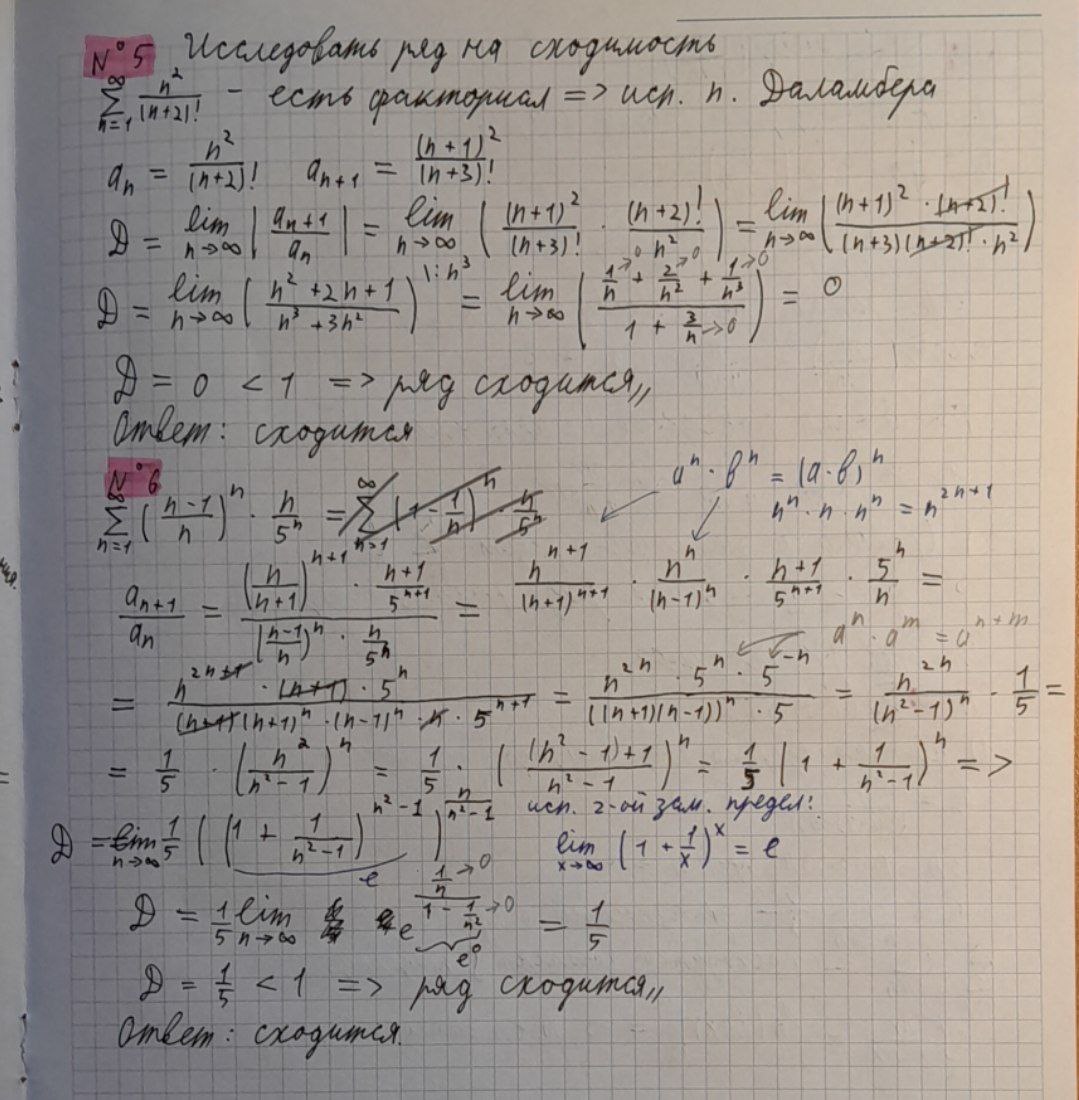 №5 Исследовать ряд на сходимость
∑_{n=1}^{∞} n²/(n+2)! - есть факториал => исп. п. Даламбера
a_n = n²/(n+2)!  a_{n+1} = (n+1)²/(n+3)!
D = lim_{n→∞} |a_{n+1}/a_n| = lim_{n→∞} ((n+1)²/(n+3)! · (n+2)!/n²) = lim_{n→∞} ((n+1)² · (n+2)!/(n+3)(n+2)! · n²)
D = lim_{n→∞} ((n² + 2n + 1)/(n³ + 3n²)) |:n³ = lim_{n→∞} ((1/n→0 + 2/n²→0 + 1/n³→0)/(1 + 3/n→0)) = 0
D = 0 < 1 => ряд сходится,,
Ответ: сходится
№6
aⁿ · bⁿ = (a·b)ⁿ
∑_{n=1}^{∞} ((n-1)/n)ⁿ · n/5ⁿ = ∑_{n=1}^{∞} (1 - 1/n)ⁿ · n/5ⁿ
nⁿ · n · nⁿ = n^{2n+1}
a_{n+1}/a_n = ((n/(n+1))^{n+1} · (n+1)/5^{n+1})/(((n-1)/n)ⁿ · n/5ⁿ) = n^{n+1}/(n+1)^{n+1} · nⁿ/(n-1)ⁿ · (n+1)/5^{n+1} · 5ⁿ/n =
aⁿ · a^m = a^{n+m}
= (n^{2n+1} · (n+1) · 5ⁿ)/((n+1)(n+1)ⁿ · (n-1)ⁿ · n · 5^{n+1}) = (n^{2n} · 5ⁿ · 5^{-n})/(((n+1)(n-1))ⁿ · 5) = n^{2n}/(n²-1)ⁿ · 1/5 =
= 1/5 · (n²/(n²-1))ⁿ = 1/5 · (((n²-1)+1)/(n²-1))ⁿ = 1/5 (1 + 1/(n²-1))ⁿ =>
исп. 2-ой зам. предел:
D = lim_{n→∞} 1/5 ((1 + 1/(n²-1))^{n²-1})^{n/(n²-1)}  lim_{x→∞} (1 + 1/x)^x = e
e
D = 1/5 lim_{n→∞} e^{(1/n→0)/(1 - 1/n²→0)} = 1/5
e⁰
D = 1/5 < 1 => ряд сходится,,
Ответ: сходится.